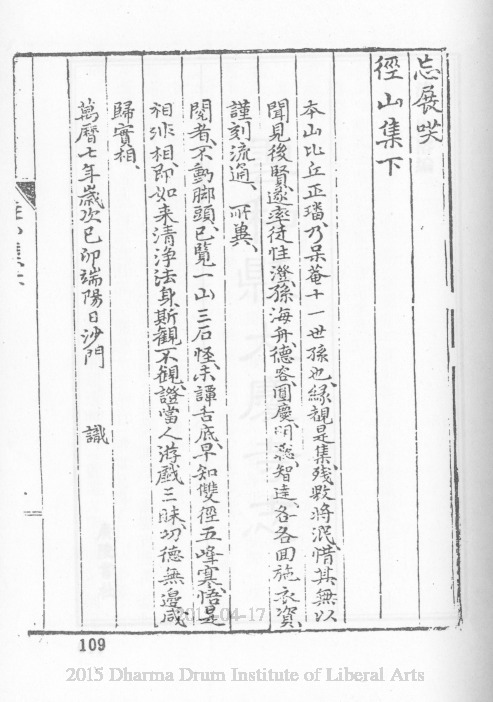 忘展哭
徑山集下
本山比丘正璠乃呆菴十一世孫也緣觀是集殘斁將泯惜其無以
聞見後賢遂率徒性澄孫海舟德容圓慶明慈智達各各回施衣資
謹刻流通所兾
閱者不動脚頭已覽一山三石怪未譚舌底早知雙徑五峰寒悟是
相非相即如来清浄法身斯觀不觀證當人游戲三昧功德無邊咸
歸實相
萬曆七年歲次己卯端陽日沙門 識
109
2015 Dharma Drum Institute of Liberal Arts